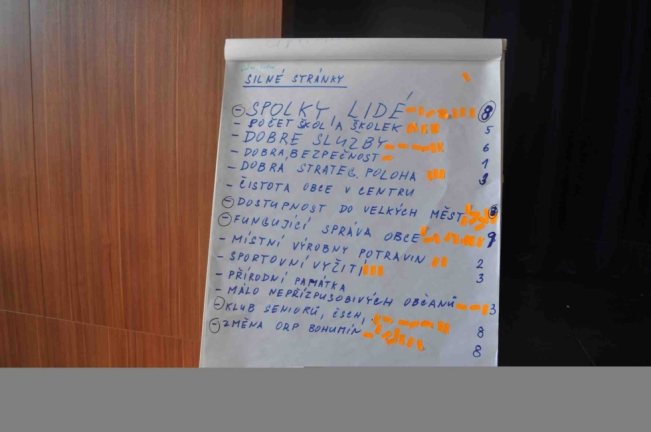 SILNÉ STRÁNKY
- SPOLKY LIDÉ 8
- POČET ŠKOL A ŠKOLEK 5
- DOBRÉ SLUŽBY 6
- DOBRÁ BEZPEČNOST 1
- DOBRÁ STRATEG. POLOHA 3
- ČISTOTA OBCE V CENTRU
- DOSTUPNOST DO VELKÝCH MĚST
- FUNGUJÍCÍ SPRÁVA OBCE 9
- MÍSTNÍ VÝROBNY POTRAVIN 2
- SPORTOVNÍ VYŽITÍ 3
- PŘÍRODNÍ PAMÁTKA
- MÁLO NEPŘIZPUSOBIVÝCH OBČANŮ 3
- KLUB SENIORŮ, ČSCH, 8
- ZMĚNA ORP BOHUMÍN 8